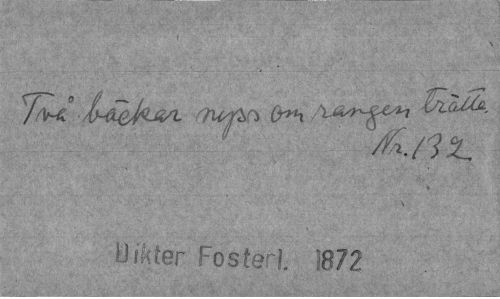 Två bäckar nyss om rangen trätte.
Nr. 132
Dikter Fosterl. 1872